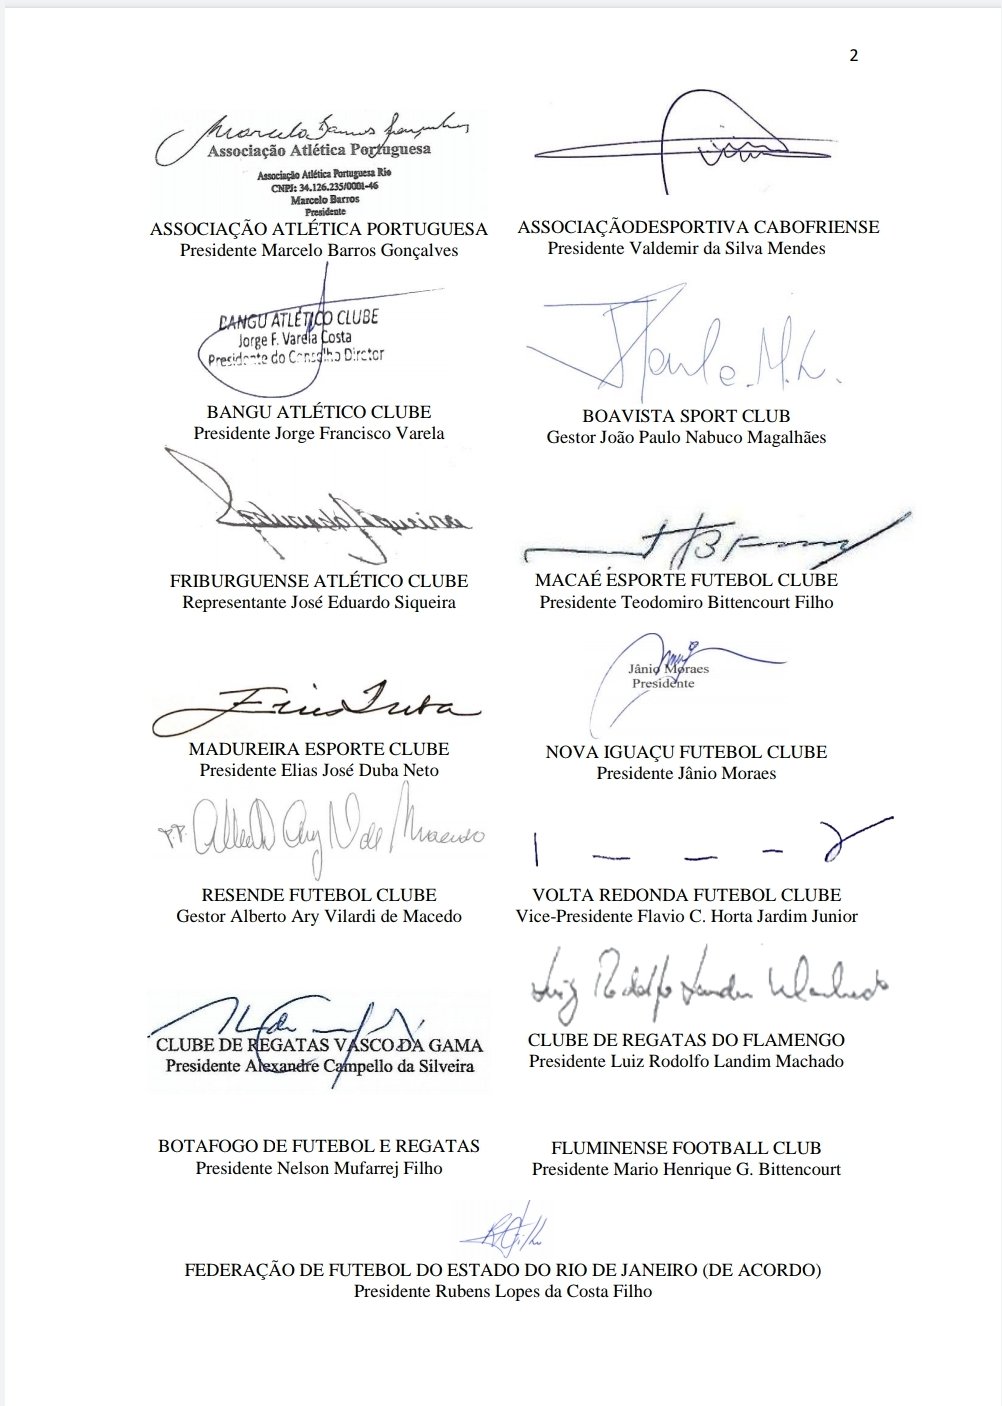 2
Marcelo Barros Gonçalves
Associação Atlética Portuguesa
Associação Atlética Portuguesa Rio
CNPJ: 34.126.235/0001-46
Marcelo Barros
Presidente
ASSOCIAÇÃO ATLÉTICA PORTUGUESA
Presidente Marcelo Barros Gonçalves
ASSOCIAÇÃODESPORTIVA CABOFRIENSE
Presidente Valdemir da Silva Mendes
BANGU ATLÉTICO CLUBE
Jorge F. Varela Costa
Presidente do Conselho Diretor
BANGU ATLÉTICO CLUBE
Presidente Jorge Francisco Varela
Paulo M.
BOAVISTA SPORT CLUB
Gestor João Paulo Nabuco Magalhães
Siqueira
FRIBURGUENSE ATLÉTICO CLUBE
Representante José Eduardo Siqueira
MACAÉ ESPORTE FUTEBOL CLUBE
Presidente Teodomiro Bittencourt Filho
Elias Duba
MADUREIRA ESPORTE CLUBE
Presidente Elias José Duba Neto
Jânio Moraes
Presidente
NOVA IGUAÇU FUTEBOL CLUBE
Presidente Jânio Moraes
P.P. Alberto Ary V. de Macedo
RESENDE FUTEBOL CLUBE
Gestor Alberto Ary Vilardi de Macedo
VOLTA REDONDA FUTEBOL CLUBE
Vice-Presidente Flavio C. Horta Jardim Junior
CLUBE DE REGATAS VASCO DA GAMA
Presidente Alexandre Campello da Silveira
Luiz Rodolfo Landim Machado
CLUBE DE REGATAS DO FLAMENGO
Presidente Luiz Rodolfo Landim Machado
BOTAFOGO DE FUTEBOL E REGATAS
Presidente Nelson Mufarrej Filho
FLUMINENSE FOOTBALL CLUB
Presidente Mario Henrique G. Bittencourt
FEDERAÇÃO DE FUTEBOL DO ESTADO DO RIO DE JANEIRO (DE ACORDO)
Presidente Rubens Lopes da Costa Filho